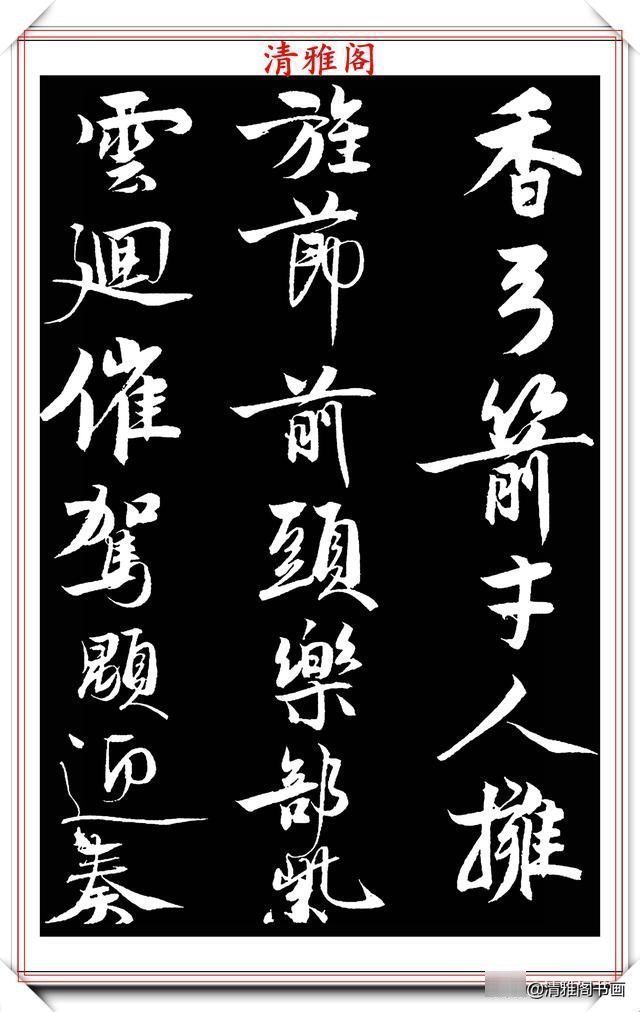 清雅阁
香弓箭才人擁
旌節前頭樂部紫
雲迴催駕顋迎奏
@清雅阁书画